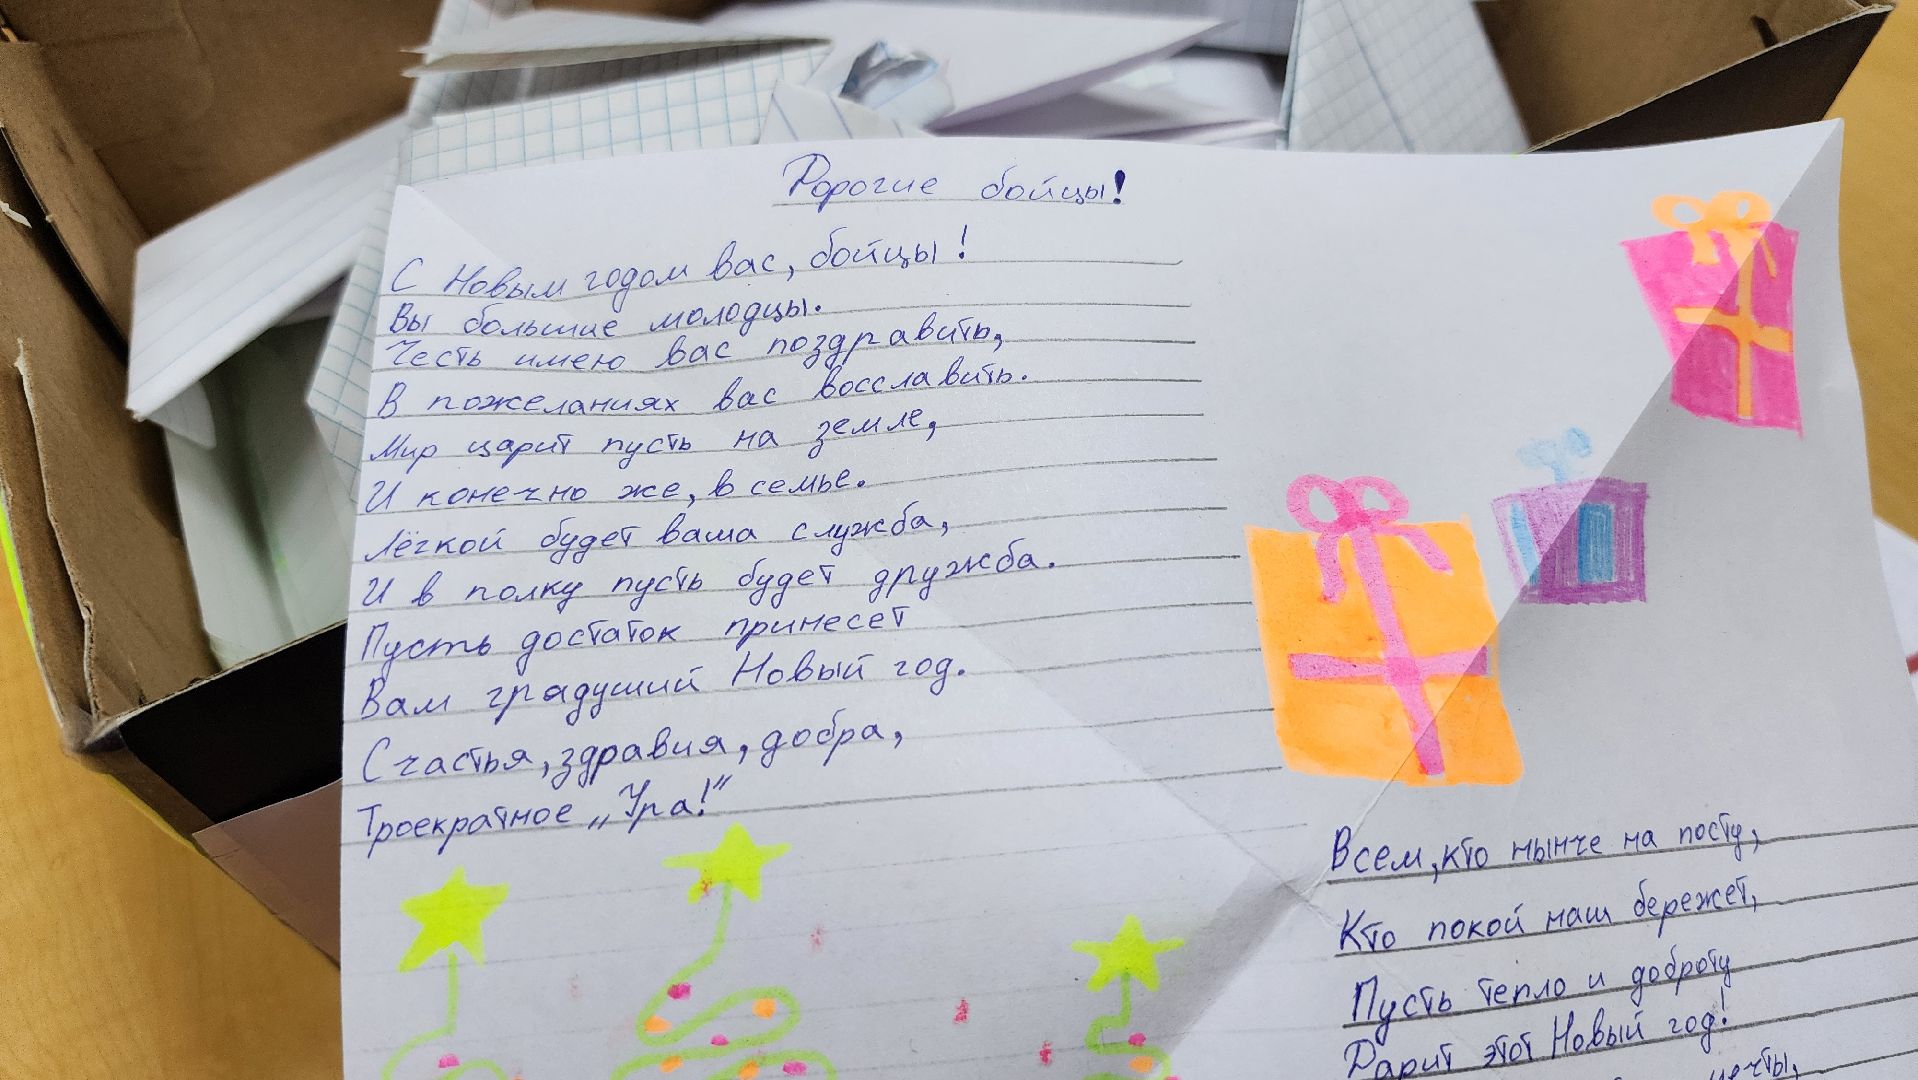 Дорогие бойцы!
С Новым годом вас, бойцы!
Вы большие молодцы.
Честь имею вас поздравить,
В пожеланиях вас восславить.
Мир царит пусть на земле,
И конечно же, в семье.
Лёгкой будет ваша служба,
И в полку пусть будет дружба.
Пусть достаток принесёт
Вам грядущий Новый год.
Счастья, здравия, добра,
Троекратное „Ура!"
Всем, кто нынче на посту,
Кто покой наш бережет,
Пусть тепло и доброту
Дарит этот Новый год!